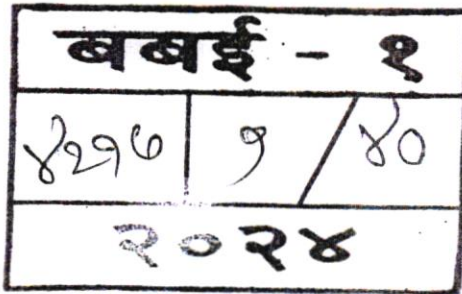 बबई - १
४२१७ १ / ४०
२०२४